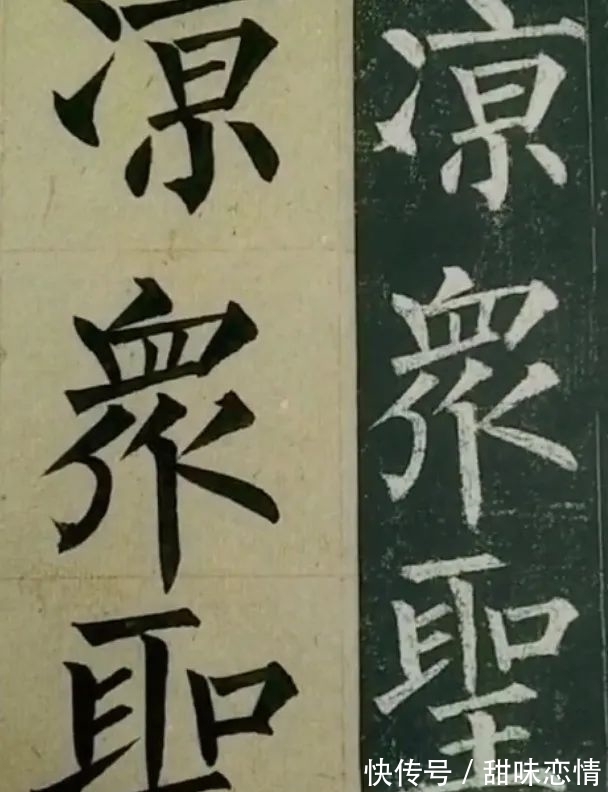 凉衆聖
凉衆聖
快传号 / 甜味恋情